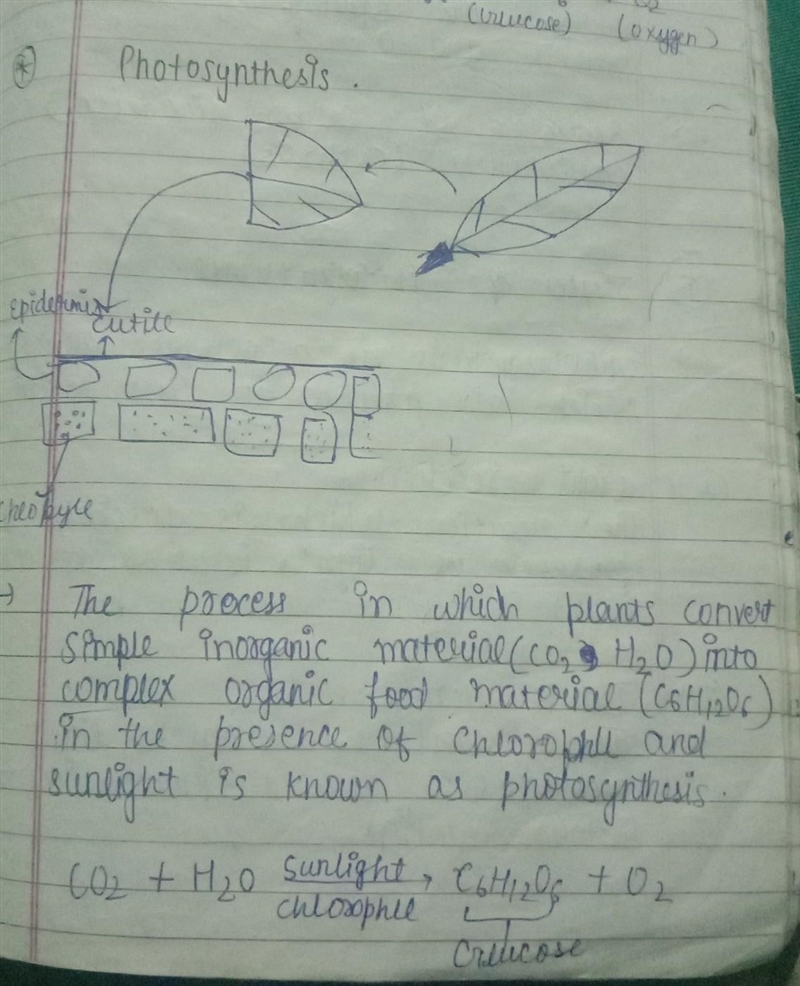 (Glucose) (oxygen)
* Photosynthesis.
Epidermis
cuticle
→ The process in which plants convert
simple inorganic material (CO2, H2O) into
complex organic food material (C6H12O6)
in the presence of chlorophll and
sunlight is known as photosynthesis.
CO2 + H2O sunlight, C6H12O6 + O2
chlorophll
Glucose